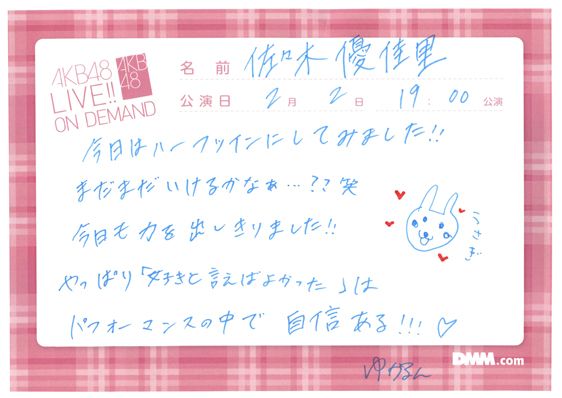 AKB48
LIVE!!
ON DEMAND
AKB
48
名前 佐々木優佳里
公演日 2月2日 19:00公演
今日はハーフツインにしてみました!!
まだまだいけるかなぁ…??笑
今日も力を出しきりました!!
うさぎ
やっぱり「好きと言えばよかった」は
パフォーマンスの中で 自信ある!!!♡
DMM.com
ゆかるん